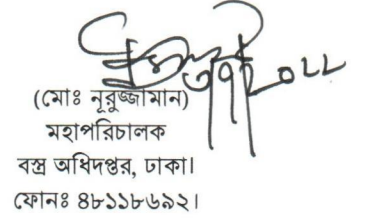 (মোঃ নূরুজ্জামান)
মহাপরিচালক
বস্ত্র অধিদপ্তর, ঢাকা।
ফোনঃ ৪৮১১৮৬৯২।